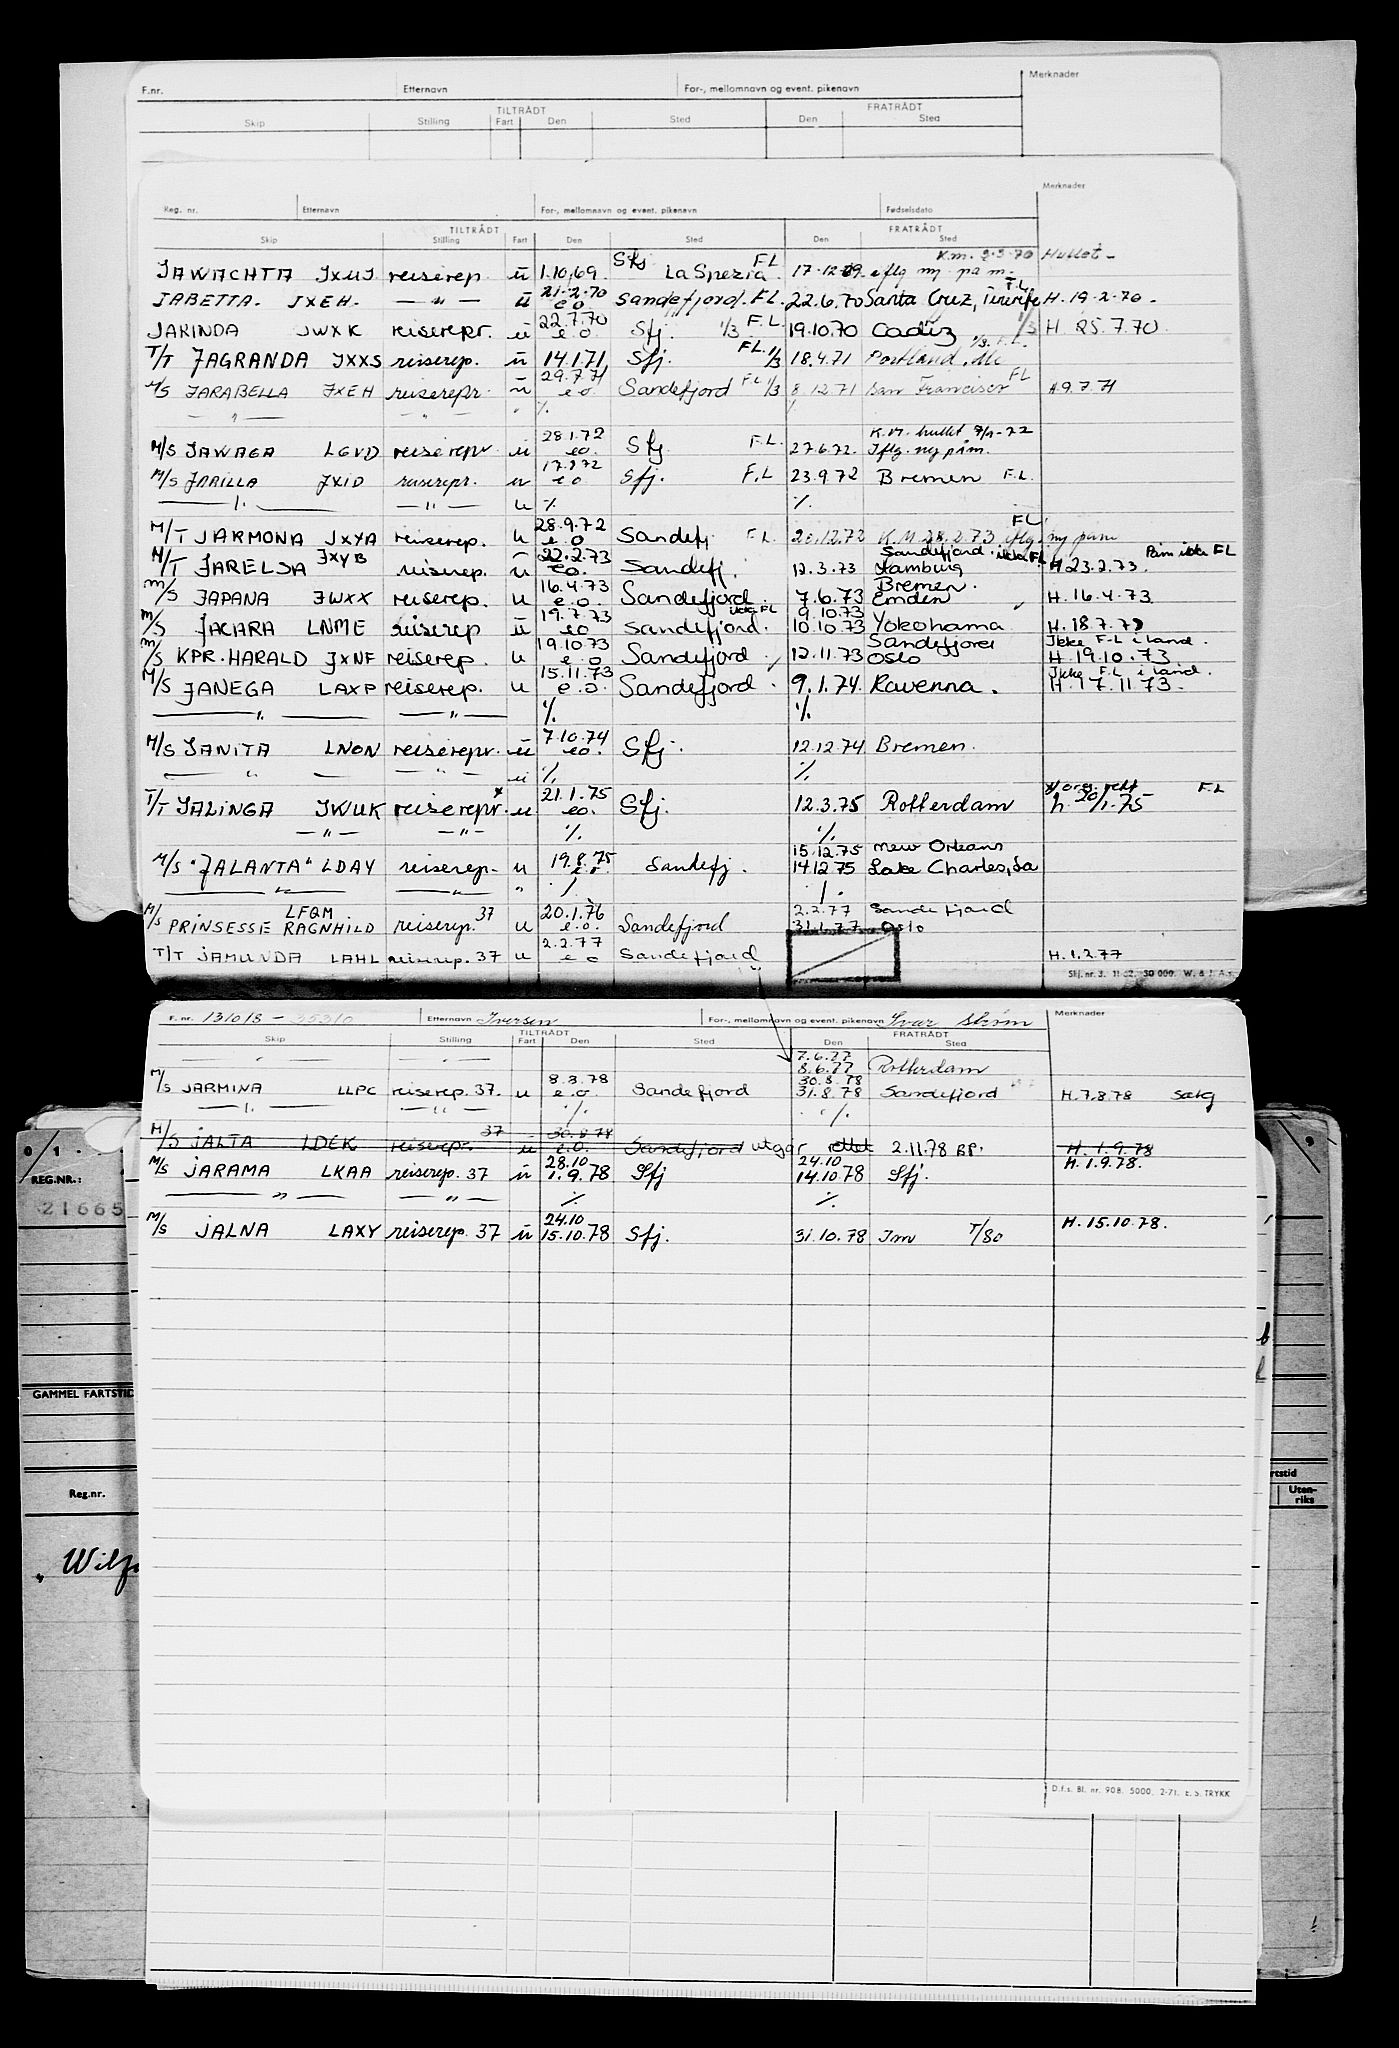 F.nr. Etternavn For-, mellomnavn og event. pikenavn Merknader
TILTRÅDT FRATRÅDT
Skip Stilling Fart Den Sted Den Sted
Merknader
Reg. nr. Etternavn For-, mellomnavn og event. pikenavn Fødselsdato
TILTRÅDT FRATRÅDT
Skip Stilling Fart Den Sted Den Sted
Sfj FL K.m. 9-3-70 Hullet-
JAWACHTA JXUJ reiserep. ü 1.10.69. La Spezia. 17-12-69. iflg ny påm.
21-2-70 FL
JABETTA. JXEH. — " — ü e.o Sandefjord. F.L. 22.6.70 Santa Cruz, Tenerife H. 19-2-70.
22.7.70
JARINDA JWXK reiserepr. ü e.o. Sfj. 1/3 F.L. 19.10.70 Cadiz 1/3 H. 25.7.70.
1/3. F.L.
T/T JAGRANDA JXXS reiserep. ü 14.1.71. Sfj. FL. 1/3 18.4.71 Portland, Me
29.7.71
M/S JARABELLA JXEH reiserepr. ü e.o. Sandefjord FL 1/3 8.12.71 San Francisco FL H 9.7.71
— " — — " — " ./. ./.
28.1.72 K.M. hullet 7/9-72
M/S JAWAGA LGVD reiserepr. ü eo. Sfj. F.L. 27.6.72. Iflg. ny påm.
17.8.72
M/S JARILLA JXID reiserepr. u e o Sfj. F.L 23.9.72 Bremen F.L.
— " — — " — u ./. ./.
28.9.72 FL.
M/T JARMONA JXYA reiserep. u e.o Sandefj F.L. 20.12.72 K.M 28.2.73 iflg. ny påm
22.2.73 Sandefjord. ikke FL Påm ikke FL
M/T JARELSA JXYB reiserep. ü eo. Sandefj. 12.3.73 Hamburg H 23.2.73.
16.4.73 Bremen.
M/S JAPANA JWXX reiserep. u e.o. Sandefjord. 7.6.73 Emden H. 16.4.73
19.7.73 ikke FL 9.10.73
M/S JACARA LNME reiserep ü eo Sandefjord. 10.10.73 Yokohama H. 18.7.73
19.10.73 Sandefjord Ikke F-L i land.
M/S KPR. HARALD JXNF reiserep. u e.o Sandefjord. 12.11.73 Oslo H. 19.10.73
15.11.73 Ikke F-L i land.
M/S JANEGA LAXP reiserep. u e.o. Sandefjord. 9.1.74. Ravenna. H. 17.11.73.
— " — — " — ./. ./.
7.10.74
M/S JANITA LNON reiserepr. ü eo. Sfj. 12.12.74 Bremen.
— " — — " — ü ./. ./.
21.1.75 F.L
T/T JALINGA JWUK reiserepr. u eo. Sfj. 12.3.75 Rotterdam h. 20/1.75
— " — — " — ./. ./.
15.12.75 New Orleans
M/S "JALANTA" LDAY reiserep. u 19.8.75 e.o. Sandefj. 14.12.75 Lake Charles, La
— " — — " — " ./. ./.
LFQM 37 20.1.76 2.2.77 Sandefjord
M/S PRINSESSE RAGNHILD reiserep. u e.o. Sandefjord 31.1.77 Oslo
2.2.77
T/T JAMUNDA LAHL reiserep. 37 u e o Sandefjord H. 1.2.77
Skj. nr. 3. 11-62. 30 000. W. & J. A.s.
F. nr. 131018 - 35310 Etternavn Iversen For-, mellomnavn og event. pikenavn Ivar Strøm Merknader
TILTRÅDT FRATRÅDT
Skip Stilling Fart Den Sted Den Sted
7.6.77
— " — — " — 8.6.77 Rotterdam
8.8.78 30.8.78
M/S JARMINA LLPC reiserep. 37. u e.o. Sandefjord 31.8.78 Sandefjord H. 7.8.78
— " — — " — ./. ./.
37 30.8.78
M/S JALTA LDEK reiserep. ü e.o. Sandefjord utgår rettet 2.11.78 BP. H. 1.9.78
28.10 24.10 H. 1.9.78.
M/S JARAMA LKAA reiserep. 37 ü 1.9.78 Sfj 14.10.78 Sfj.
— " — — " — ./. ./.
24.10 H. 15.10.78.
M/S JALNA LAXY reiserep. 37 ü 15.10.78 Sfj. 31.10.78 Im T/80
D.f.s. Bl. nr. 908. 5000. 2-71. E. S. TRYKK
REG.NR.:
21665
GAMMEL FARTSTID
Reg.nr.
rtstid
Uten-
riks